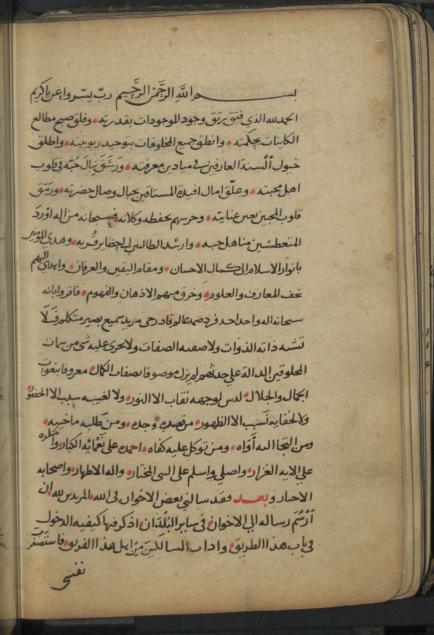 بسم الله الرحمن الرحيم رب يسر واعن يا كريم
الحمد لله الذي فتق رتق وجود الموجودات بقدرته وفلق صبح مطالع
الكاينات بحكمته وانطق جميع المخلوقات بتوحيد ربوبيته واطلق
خيول السنة العارفين في ميادين معرفته ورشق نبال حبه في قلوب
اهل محبته وعلق امال افيدة المستاقين بجمال وصال حضرته ورمق
قلوب المحبين بعين عنايته وحرسهم بحفظه وكلاته فسبحانه من اله اورد
المتعطشين مناهل حبه وارشد الطالبين الي حضاير قربه وهدي المومنين
بانوار الاسلام الي كمال الاحسان ومقام اليقين والعرفان واهدي اليهم
تحف المعارف والعلوم وخرق منهم الاذهان والفهوم فاقروا بانه
سبحانه اله واحد احد فرد صمد عالم قادر حي مريد سميع بصير متكلم فلا
تشبه ذاته الذوات ولا صفته الصفات ولا يجري عليه شي من سمات
المخلوقين الدالة علي حدثهم لم يزل موصوفا بصفات الكمال معروفا بنعوت
الجمال والجلال ليس لوجهه نقاب الا النور ولا لغيبه سبب الا الحضور
ولا لخفايه نسب الا الظهور من قصده وجده ومن طلبه ما خيبه
ومن التجا اليه آواه ومن توكل عليه كفاه احمده على نعمائه الكبار واشكره
علي الايه الغزار واصلي واسلم علي النبي المختار واله الاطهار واصحابه
الاخيار وبعد فقد سالني بعض الاخوان في الله المريدين لله ان
ارسم رساله الي الاخوان في ساير البلدان اذكر فيها كيفيه الدخول
في باب هذا الطريق واداب السالكين من اهل هذا الفريق فاستصغرت
نفسي